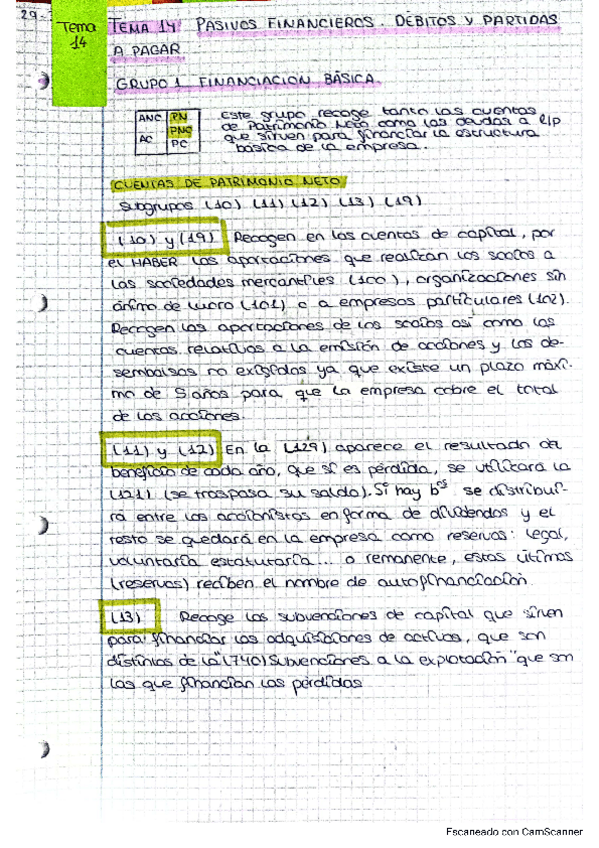 29-
Tema
14
TEMA 14 PASIVOS FINANCIEROS. DÉBITOS Y PARTIDAS
A PAGAR
GRUPO 1 FINANCIACIÓN BÁSICA.
ANC PN
PNC
AC PC
Este grupo recoge tanto las cuentas
de Patrimonio Neto como las deudas a l/p
que sirven para financiar la estructura
básica de la empresa.
CUENTAS DE PATRIMONIO NETO
Subgrupos (10) (11) (12) (13) (19)
(10) y (19) Recogen en las cuentas de capital, por
el HABER las aportaciones que realizan los socios a
las sociedades mercantiles (100), organizaciones sin
ánimo de lucro (101) o a empresas particulares (102).
Recogen las aportaciones de los socios así como las
cuentas relativas a la emisión de acciones y los de-
sembolsos no exigidos ya que existe un plazo máxi-
mo de 5 años para que la empresa cobre el total
de las acciones.
(11) y (12) En la (129) aparece el resultado del
beneficio de cada año, que si es pérdida, se utilizará la
(121) (se traspasa su saldo). Si hay bºs se distribui-
rá entre los accionistas en forma de dividendos y el
resto se quedará en la empresa como reservas: legal,
voluntaria estatutaria... o remanente, estas últimas
(reservas) reciben el nombre de autofinanciación.
(13) Recoge las subvenciones de capital que sirven
para financiar las adquisiciones de activos, que son
distintas de la "(740) Subvenciones a la explotación" que son
las que financian las pérdidas
Escaneado con CamScanner